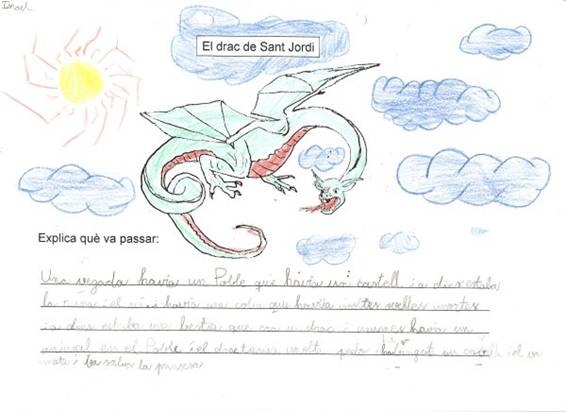 Imael
El drac de Sant Jordi
Explica què va passar:
Una vegada havia un Poble que havia un castell i a dins estaba
la i el havia una cova que havia moltes ovelles mortes
i a dins estaba una bestia que era un drac i nomes havia un
animal en el Poble i el drac tenia molta pero un i el va
mata i ba salva la